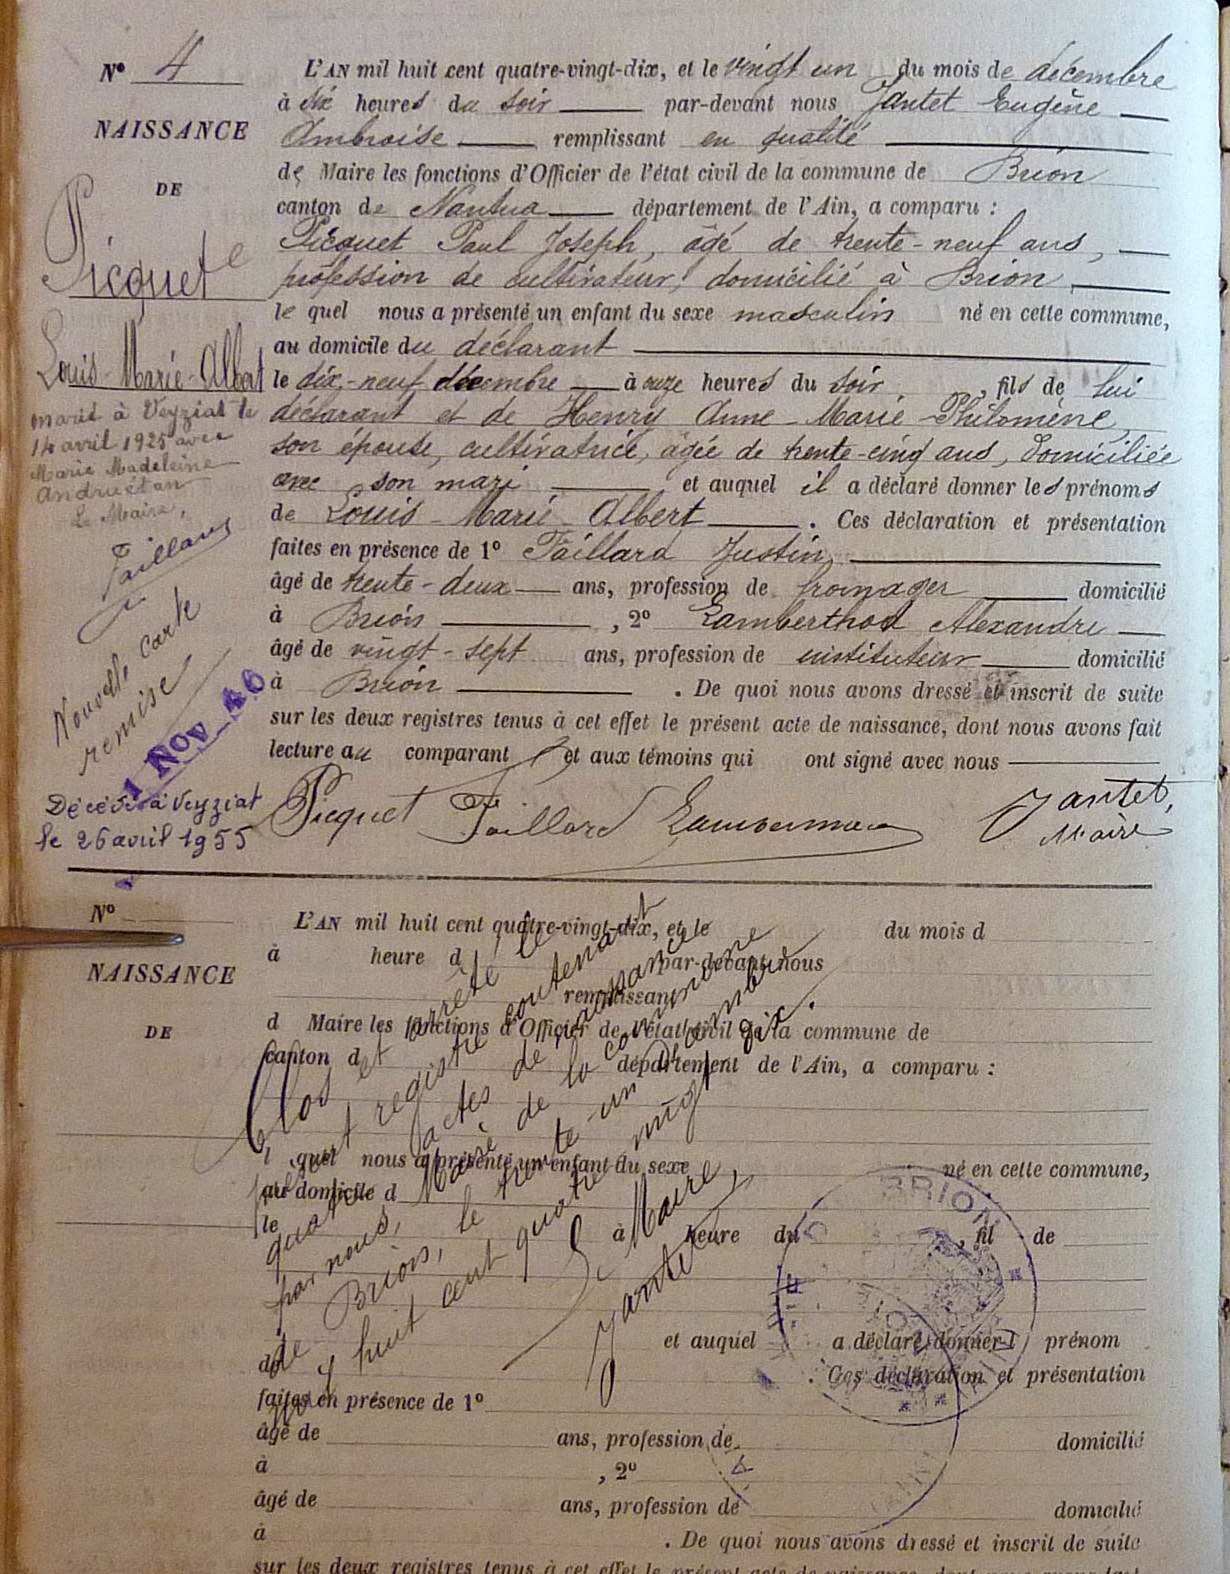 N° 4
NAISSANCE
DE
Picquet
Louis-Marie-Albert
marié à Veyziat le
14 avril 1925 avec
Marie Madeleine
Andruétan
Le Maire,
Taillard
Nouvelle carte
remise
1 NOV 46
Décédé à Veyziat
le 26 avril 1955
L'AN mil huit cent quatre-vingt-dix, et le vingt un du mois de décembre
à six heures du soir par-devant nous Jantet Eugène
Ambroise remplissant en qualité
de Maire les fonctions d'Officier de l'état civil de la commune de Brion
canton de Nantua département de l'Ain, a comparu :
Picquet Paul Joseph, âgé de trente-neuf ans,
profession de cultivateur, domicilié à Brion,
le quel nous a présenté un enfant du sexe masculin né en cette commune,
au domicile du déclarant
le dix-neuf décembre à onze heures du soir, fils de lui
déclarant et de Henry Anne-Marie-Philomène,
son épouse, cultivatrice, âgée de trente-cinq ans, domiciliée
avec son mari et auquel il a déclaré donner les prénoms
de Louis-Marie-Albert. Ces déclaration et présentation
faites en présence de 1° Taillard Justin,
âgé de trente-deux ans, profession de fromager domicilié
à Brion, 2° Lamberthod Alexandre
âgé de vingt-sept ans, profession de instituteur domicilié
à Brion. De quoi nous avons dressé et inscrit de suite
sur les deux registres tenus à cet effet le présent acte de naissance, dont nous avons fait
lecture au comparant et aux témoins qui ont signé avec nous
Picquet Taillard Jantet,
Maire
N°
NAISSANCE
DE
L'AN mil huit cent quatre-vingt-dix, et le du mois d
à heure d par-devant nous
remplissant
d Maire les fonctions d'Officier de l'état civil de la commune de
canton d département de l'Ain, a comparu :
l quel nous a présenté un enfant du sexe né en cette commune,
au domicile d
le à heure du , fil de
et auquel a déclaré donner l prénom
d . Ces déclaration et présentation
faites en présence de 1°
âgé de ans, profession de domicilié
à , 2°
âgé de ans, profession de domicilié
à . De quoi nous avons dressé et inscrit de suite
sur les deux registres tenus à cet effet le présent acte de naissance, dont nous avons fait
Clos et arrêté le
présent registre contenant
quatre actes de naissance
par nous, Maire de la commune
de Brion, le trente-un décembre
mil huit cent quatre-vingt-dix.
Le Maire,
Jantet
BRION